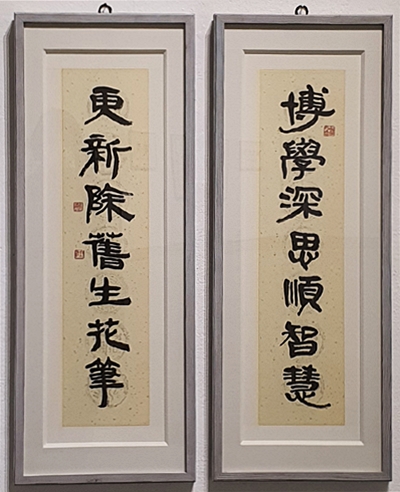 博學深思順智慧
更新除舊生花筆